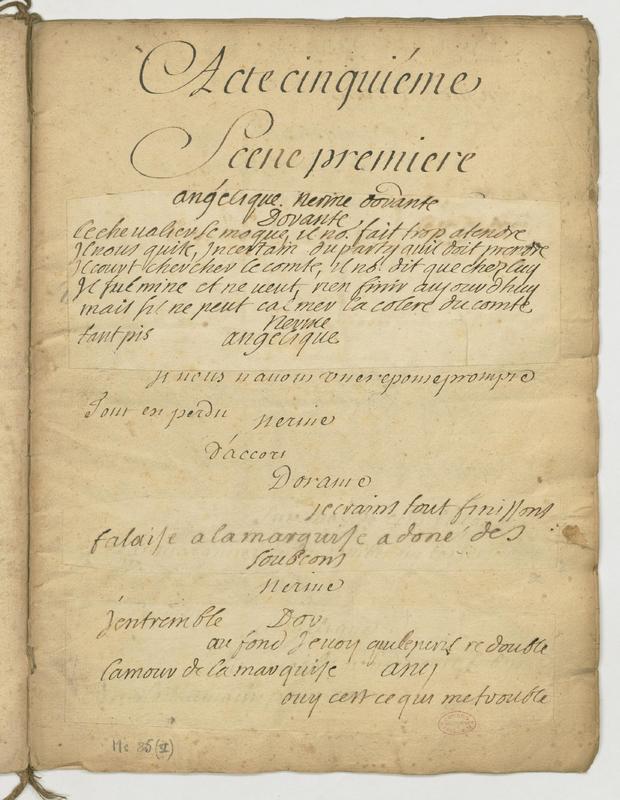 Acte cinquiéme
Scene premiere
angélique. nerine dorante
Dorante
le chevalier se moque, il no. fait trop atendre
Il nous quite, Incertain du party quil doit prendre
Il court chercher le comte, il no. dit que chez luy
Il fulmine et ne veut, rien finir aujourdhuy
mais sil ne peut calmer la colere du comte
nerine
tant pis angélique
si nous n'avons une reponse prompte
Tout est perdu nerine
D'accort
Dorante
je crains tout finissons
falaise a la marquise a doné des
soubcons
nerine
J'en tremble Dor
au fond Je voy que le peril redouble
l'amour de la marquise ang
ouy cest ce qui me trouble
Mc 35 (II)